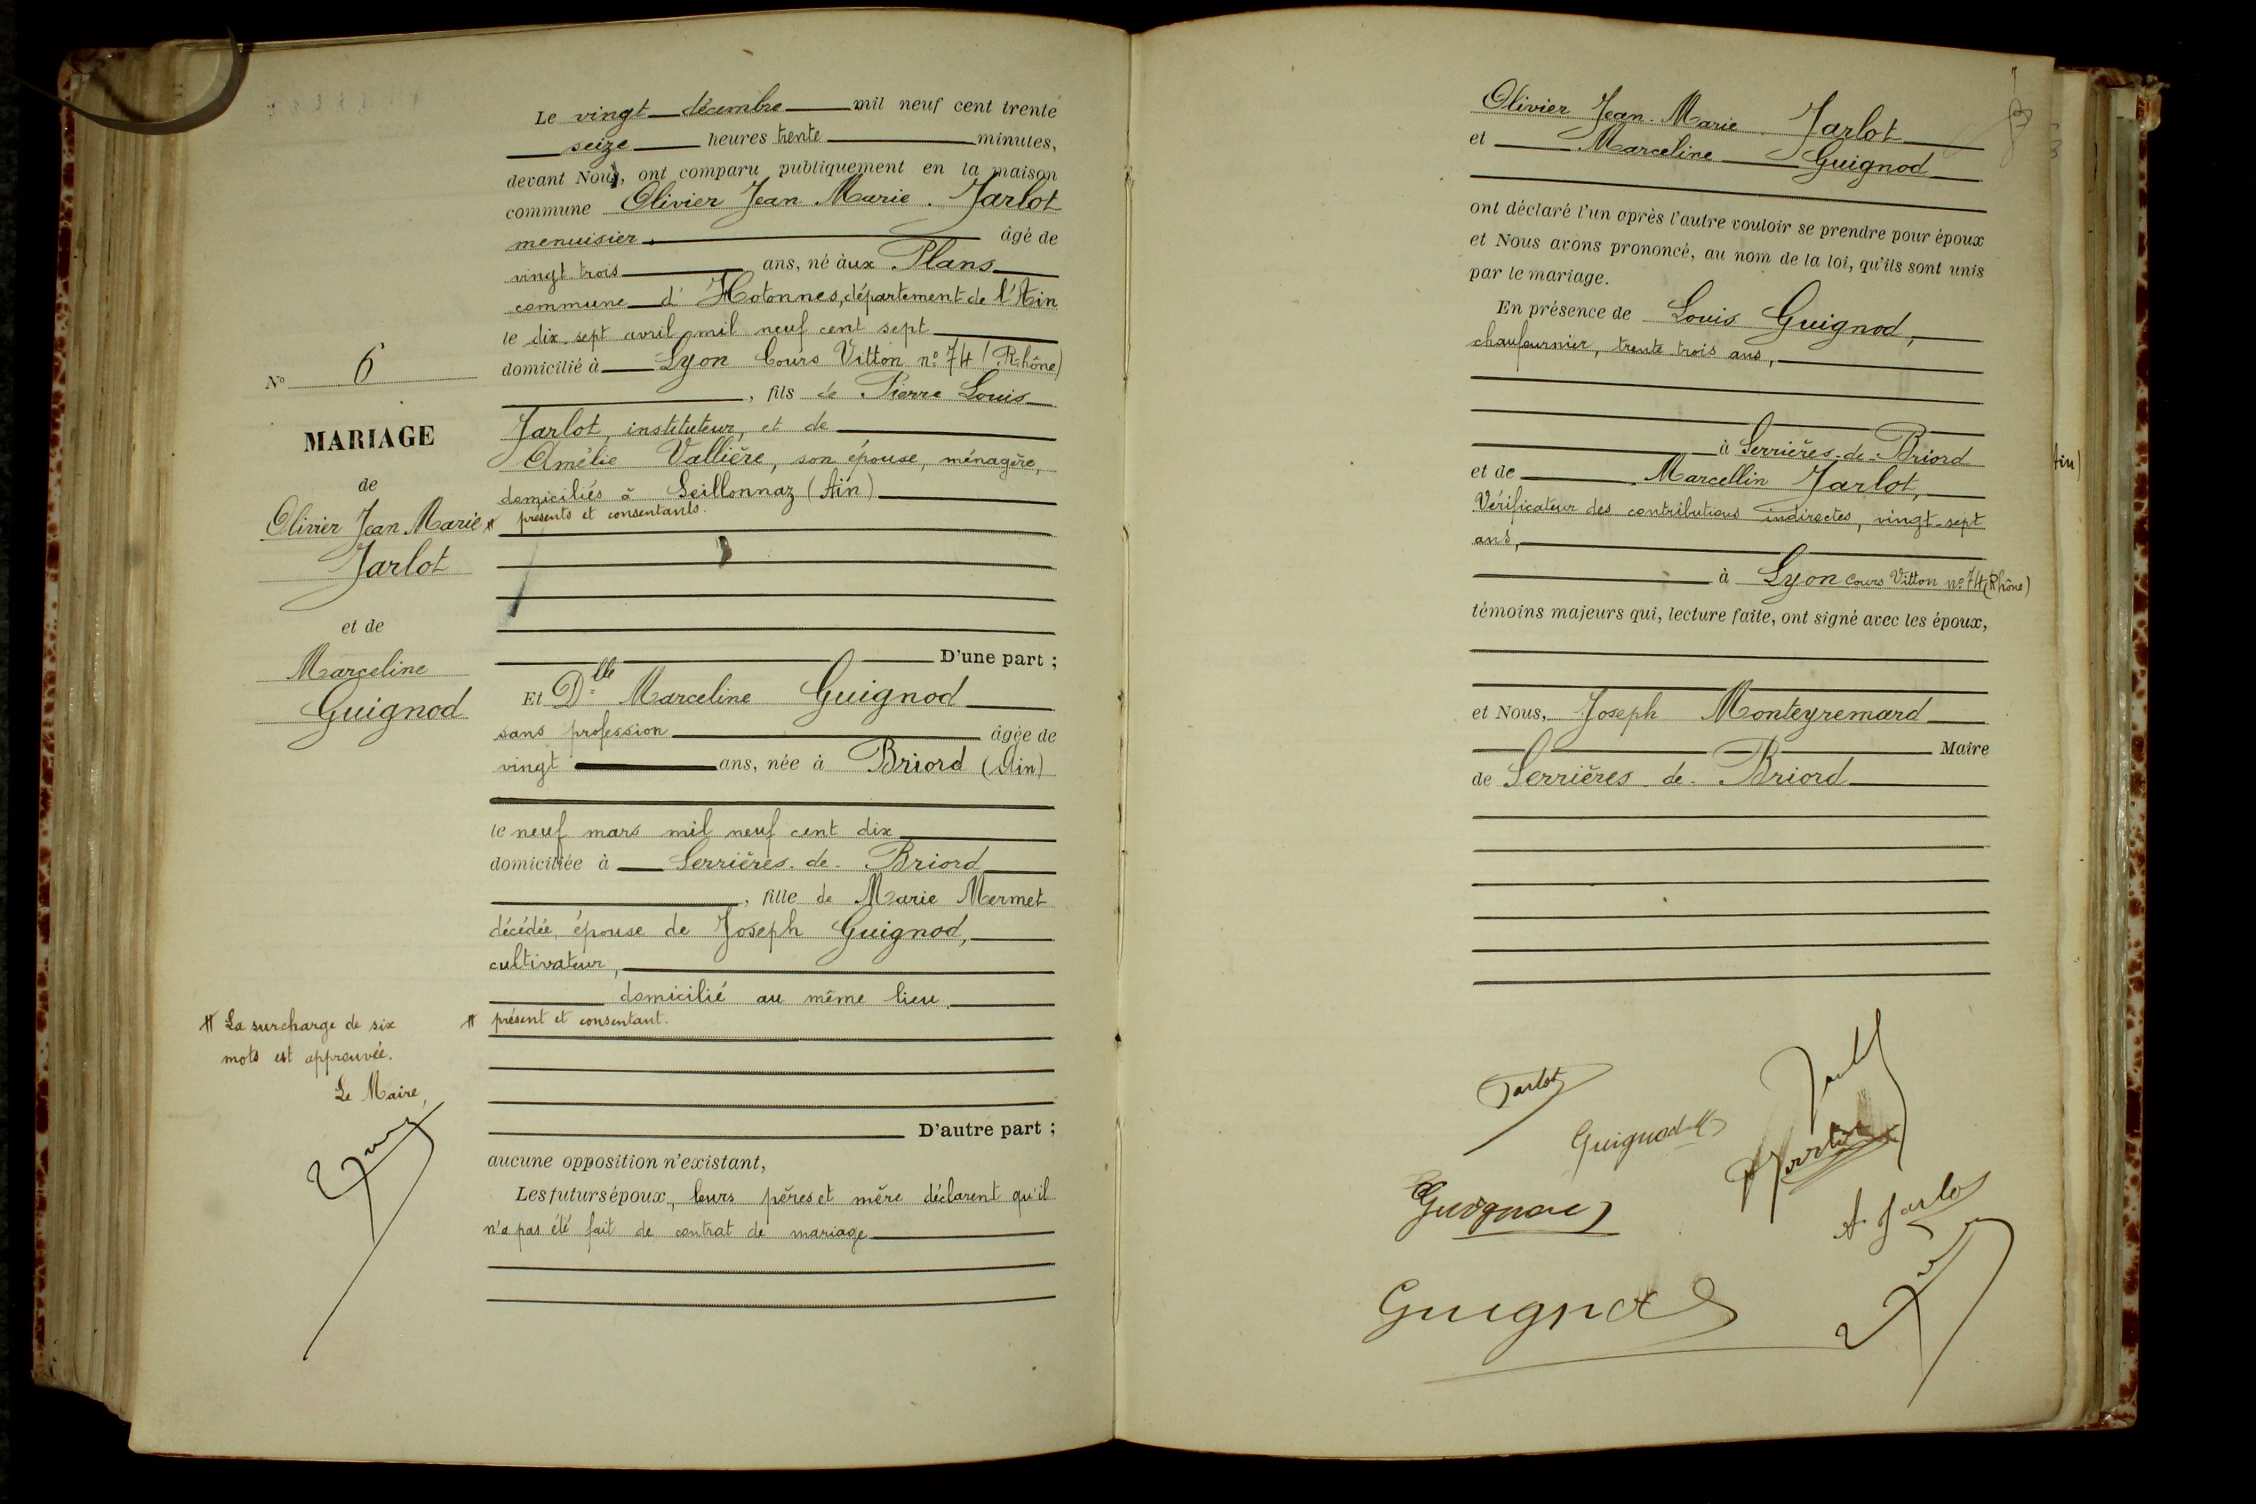 N° 6
MARIAGE
de
Olivier Jean Marie
Jarlot
et de
Marceline
Guignod
# La surcharge de six
mots est approuvée.
Le Maire,
Le vingt décembre mil neuf cent trente
seize heures trente minutes,
devant Nous, ont comparu publiquement en la maison
commune Olivier Jean Marie. Jarlot
menuisier, âgé de
vingt trois ans, né aux Plans
commune d'Hotonnes, département de l'Ain
le dix-sept avril mil neuf cent sept
domicilié à Lyon Cours Vitton n° 74 (Rhône)
, fils de Pierre Louis
Jarlot, instituteur, et de
Amélie Vallière, son épouse, ménagère,
domiciliés à Seillonnaz (Ain)
# présents et consentants.
D'une part ;
Et Dlle Marceline Guignod
sans profession âgée de
vingt ans, née à Briord (Ain)
le neuf mars mil neuf cent dix
domiciliée à Serrières-de-Briord
, fille de Marie Mermet
décédée, épouse de Joseph Guignod,
cultivateur,
domicilié au même lieu
# présent et consentant.
D'autre part ;
aucune opposition n'existant,
Les futurs époux, leurs pères et mère déclarent qu'il
n'a pas été fait de contrat de mariage
Olivier Jean-Marie Jarlot
et Marceline Guignod
ont déclaré l'un après l'autre vouloir se prendre pour époux
et Nous avons prononcé, au nom de la loi, qu'ils sont unis
par le mariage.
En présence de Louis Guignod,
chaufournier, trente trois ans,
à Serrières-de-Briord
et de Marcellin Jarlot,
Vérificateur des contributions indirectes, vingt-sept
ans,
à Lyon cours Vitton n° 74 (Rhône)
témoins majeurs qui, lecture faite, ont signé avec les époux,
et Nous, Joseph Monteyremard
Maire
de Serrières-de-Briord
Ain)
Jarlot
Guignod M
Guignod
A. Jarlot
Guignod